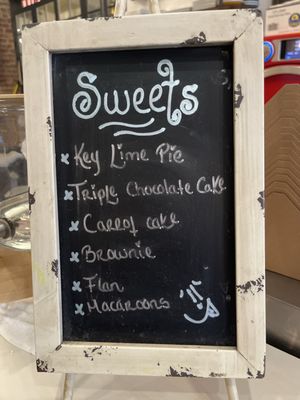 Sweets
x Key Lime Pie
x Triple Chocolate Cake
x Carrot cake
x Brownie
x Flan
x Macaroons